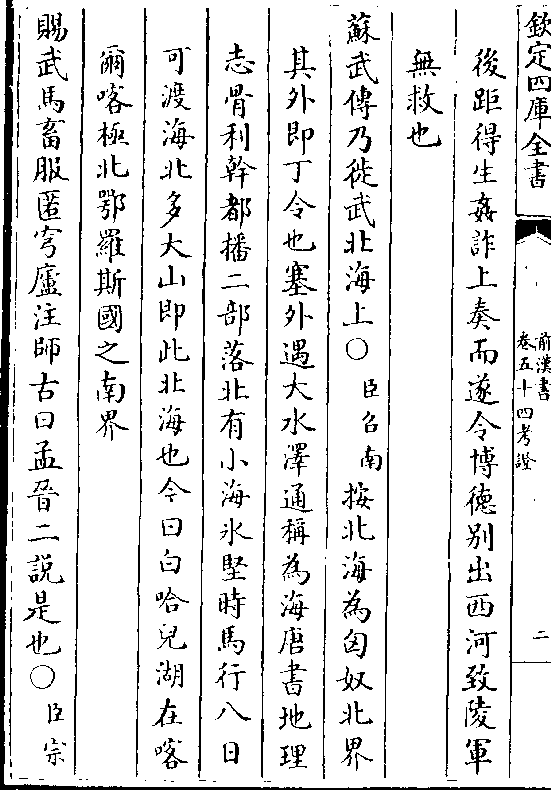 欽定四庫全書
前漢書
卷五十四考證
二
後距得生姦詐上奏而遂令博德别出西河致陵軍
無救也
蘇武傳乃徙武北海上○臣召南按北海為匈奴北界
其外即丁令也塞外遇大水澤通稱為海唐書地理
志骨利幹都播二部落北有小海氷堅時馬行八日
可渡海北多大山即此北海也今曰白哈兒湖在喀
爾喀極北鄂羅斯國之南界
賜武馬畜服匿穹廬注師古曰孟晉二説是也○臣宗